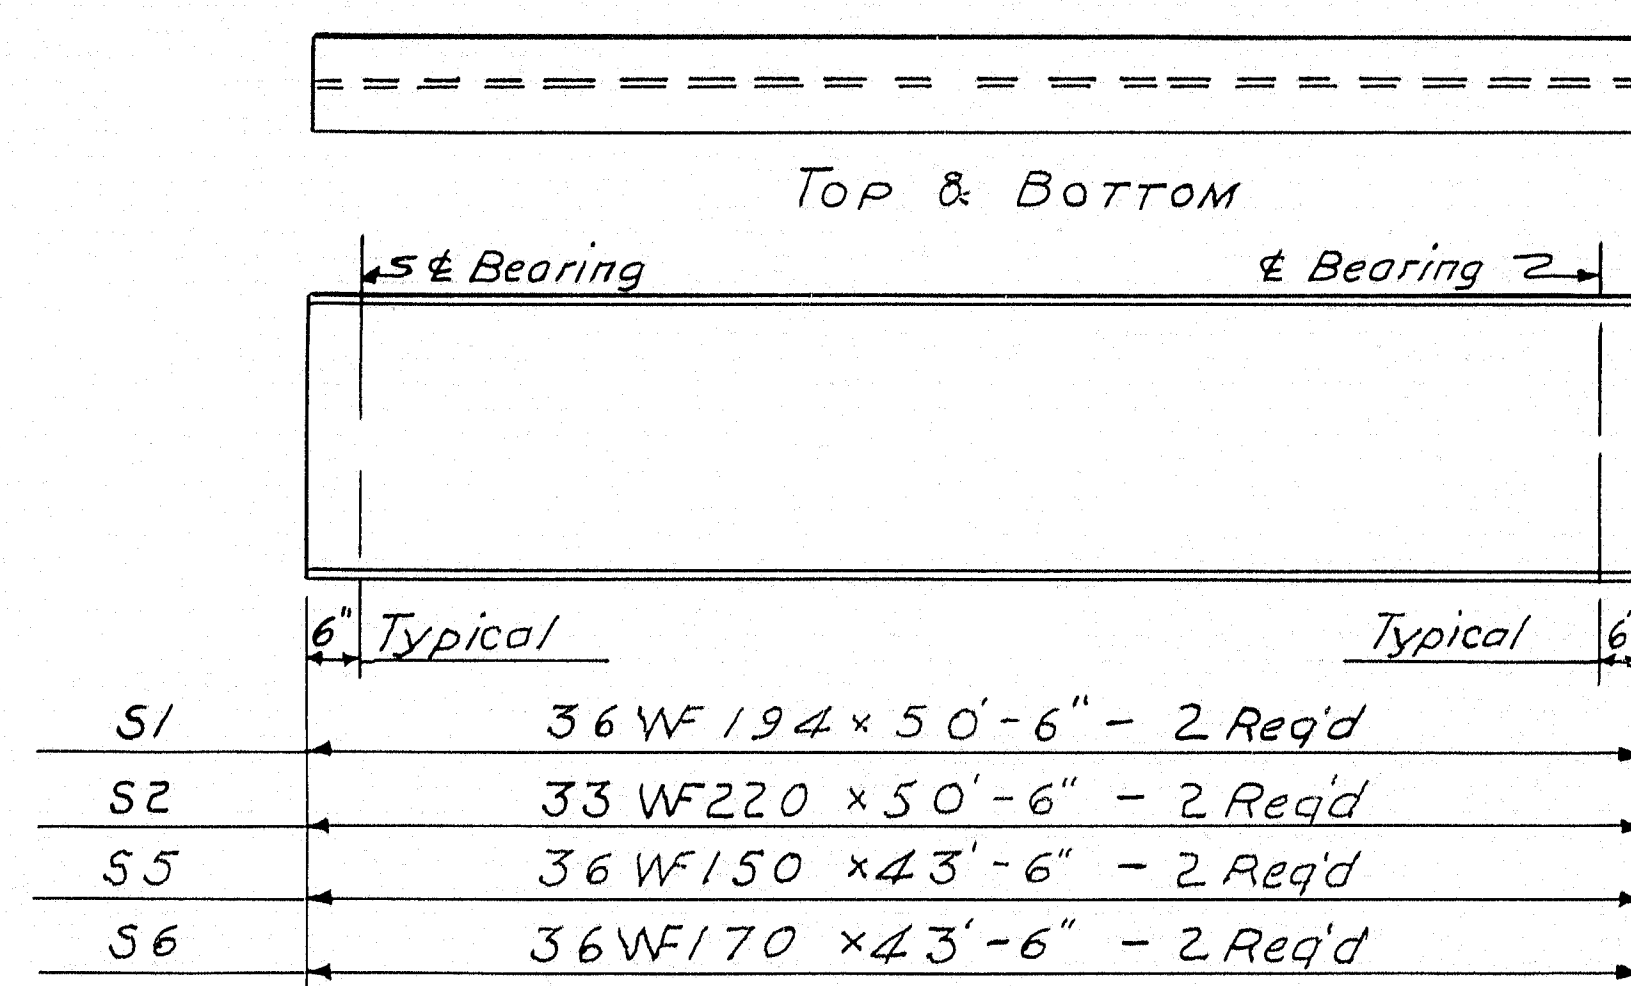 TOP & BOTTOM
℄ Bearing ℄ Bearing
6" Typical Typical 6"
S1 36 WF 194 x 50'-6" - 2 Req'd
S2 33 WF 220 x 50'-6" - 2 Req'd
S5 36 WF 150 x 43'-6" - 2 Req'd
S6 36 WF 170 x 43'-6" - 2 Req'd